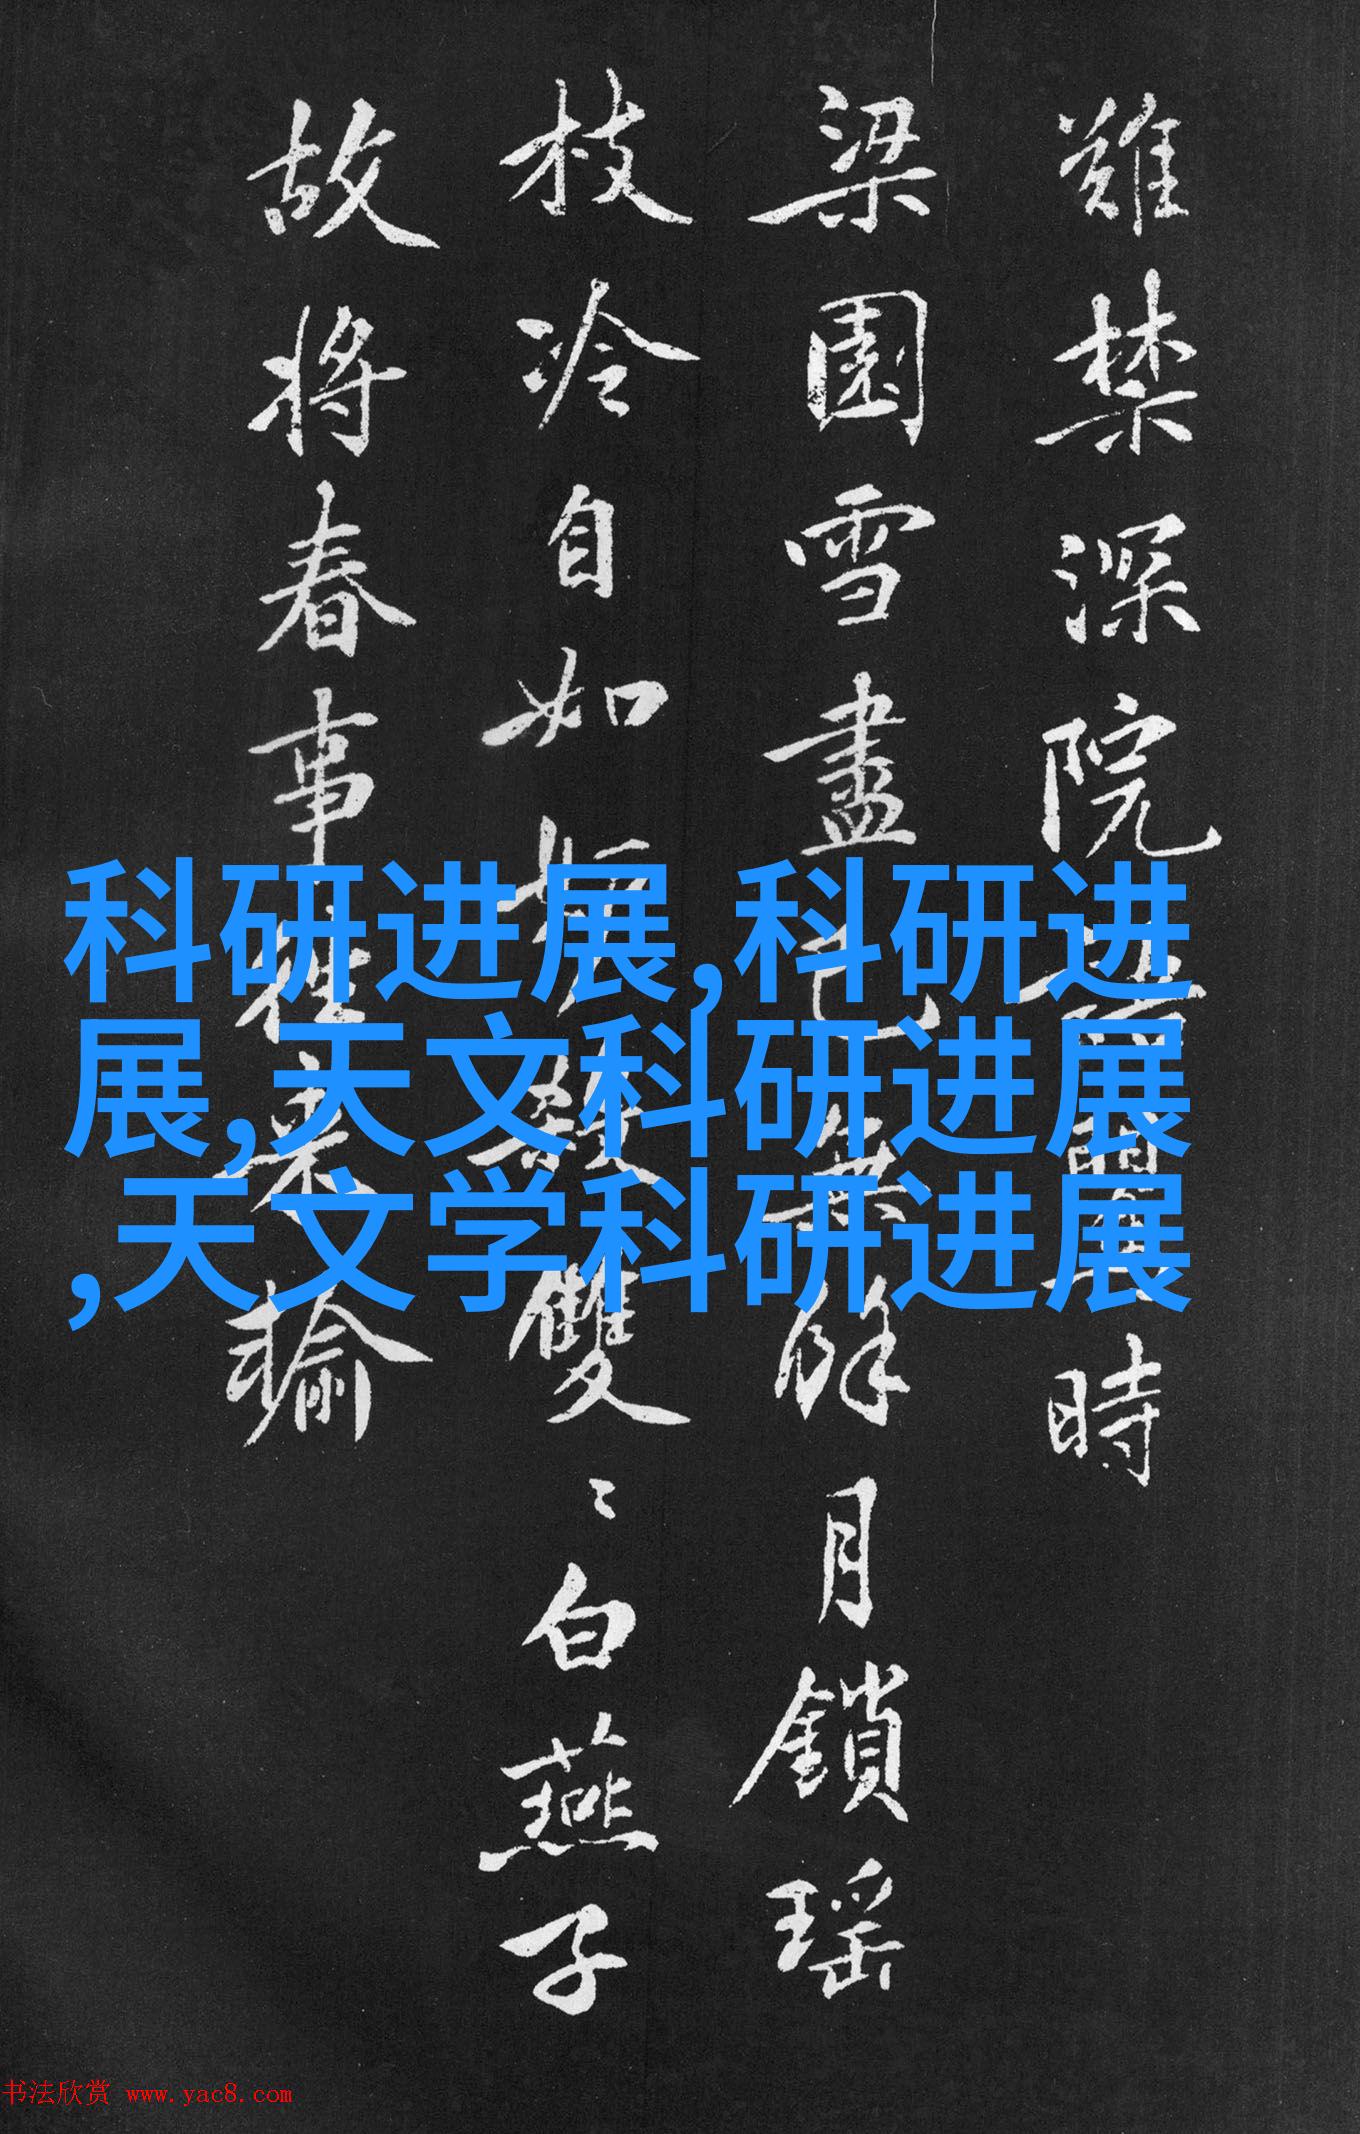 難禁深院
時
梁園雪盡已無餘月鎖瑤
枝冷自如
雙〻白燕子
故將春事
來輸
科研进展,科研进
展,天文科研进展
,天文学科研进展
书法欣赏 www.yac8.com